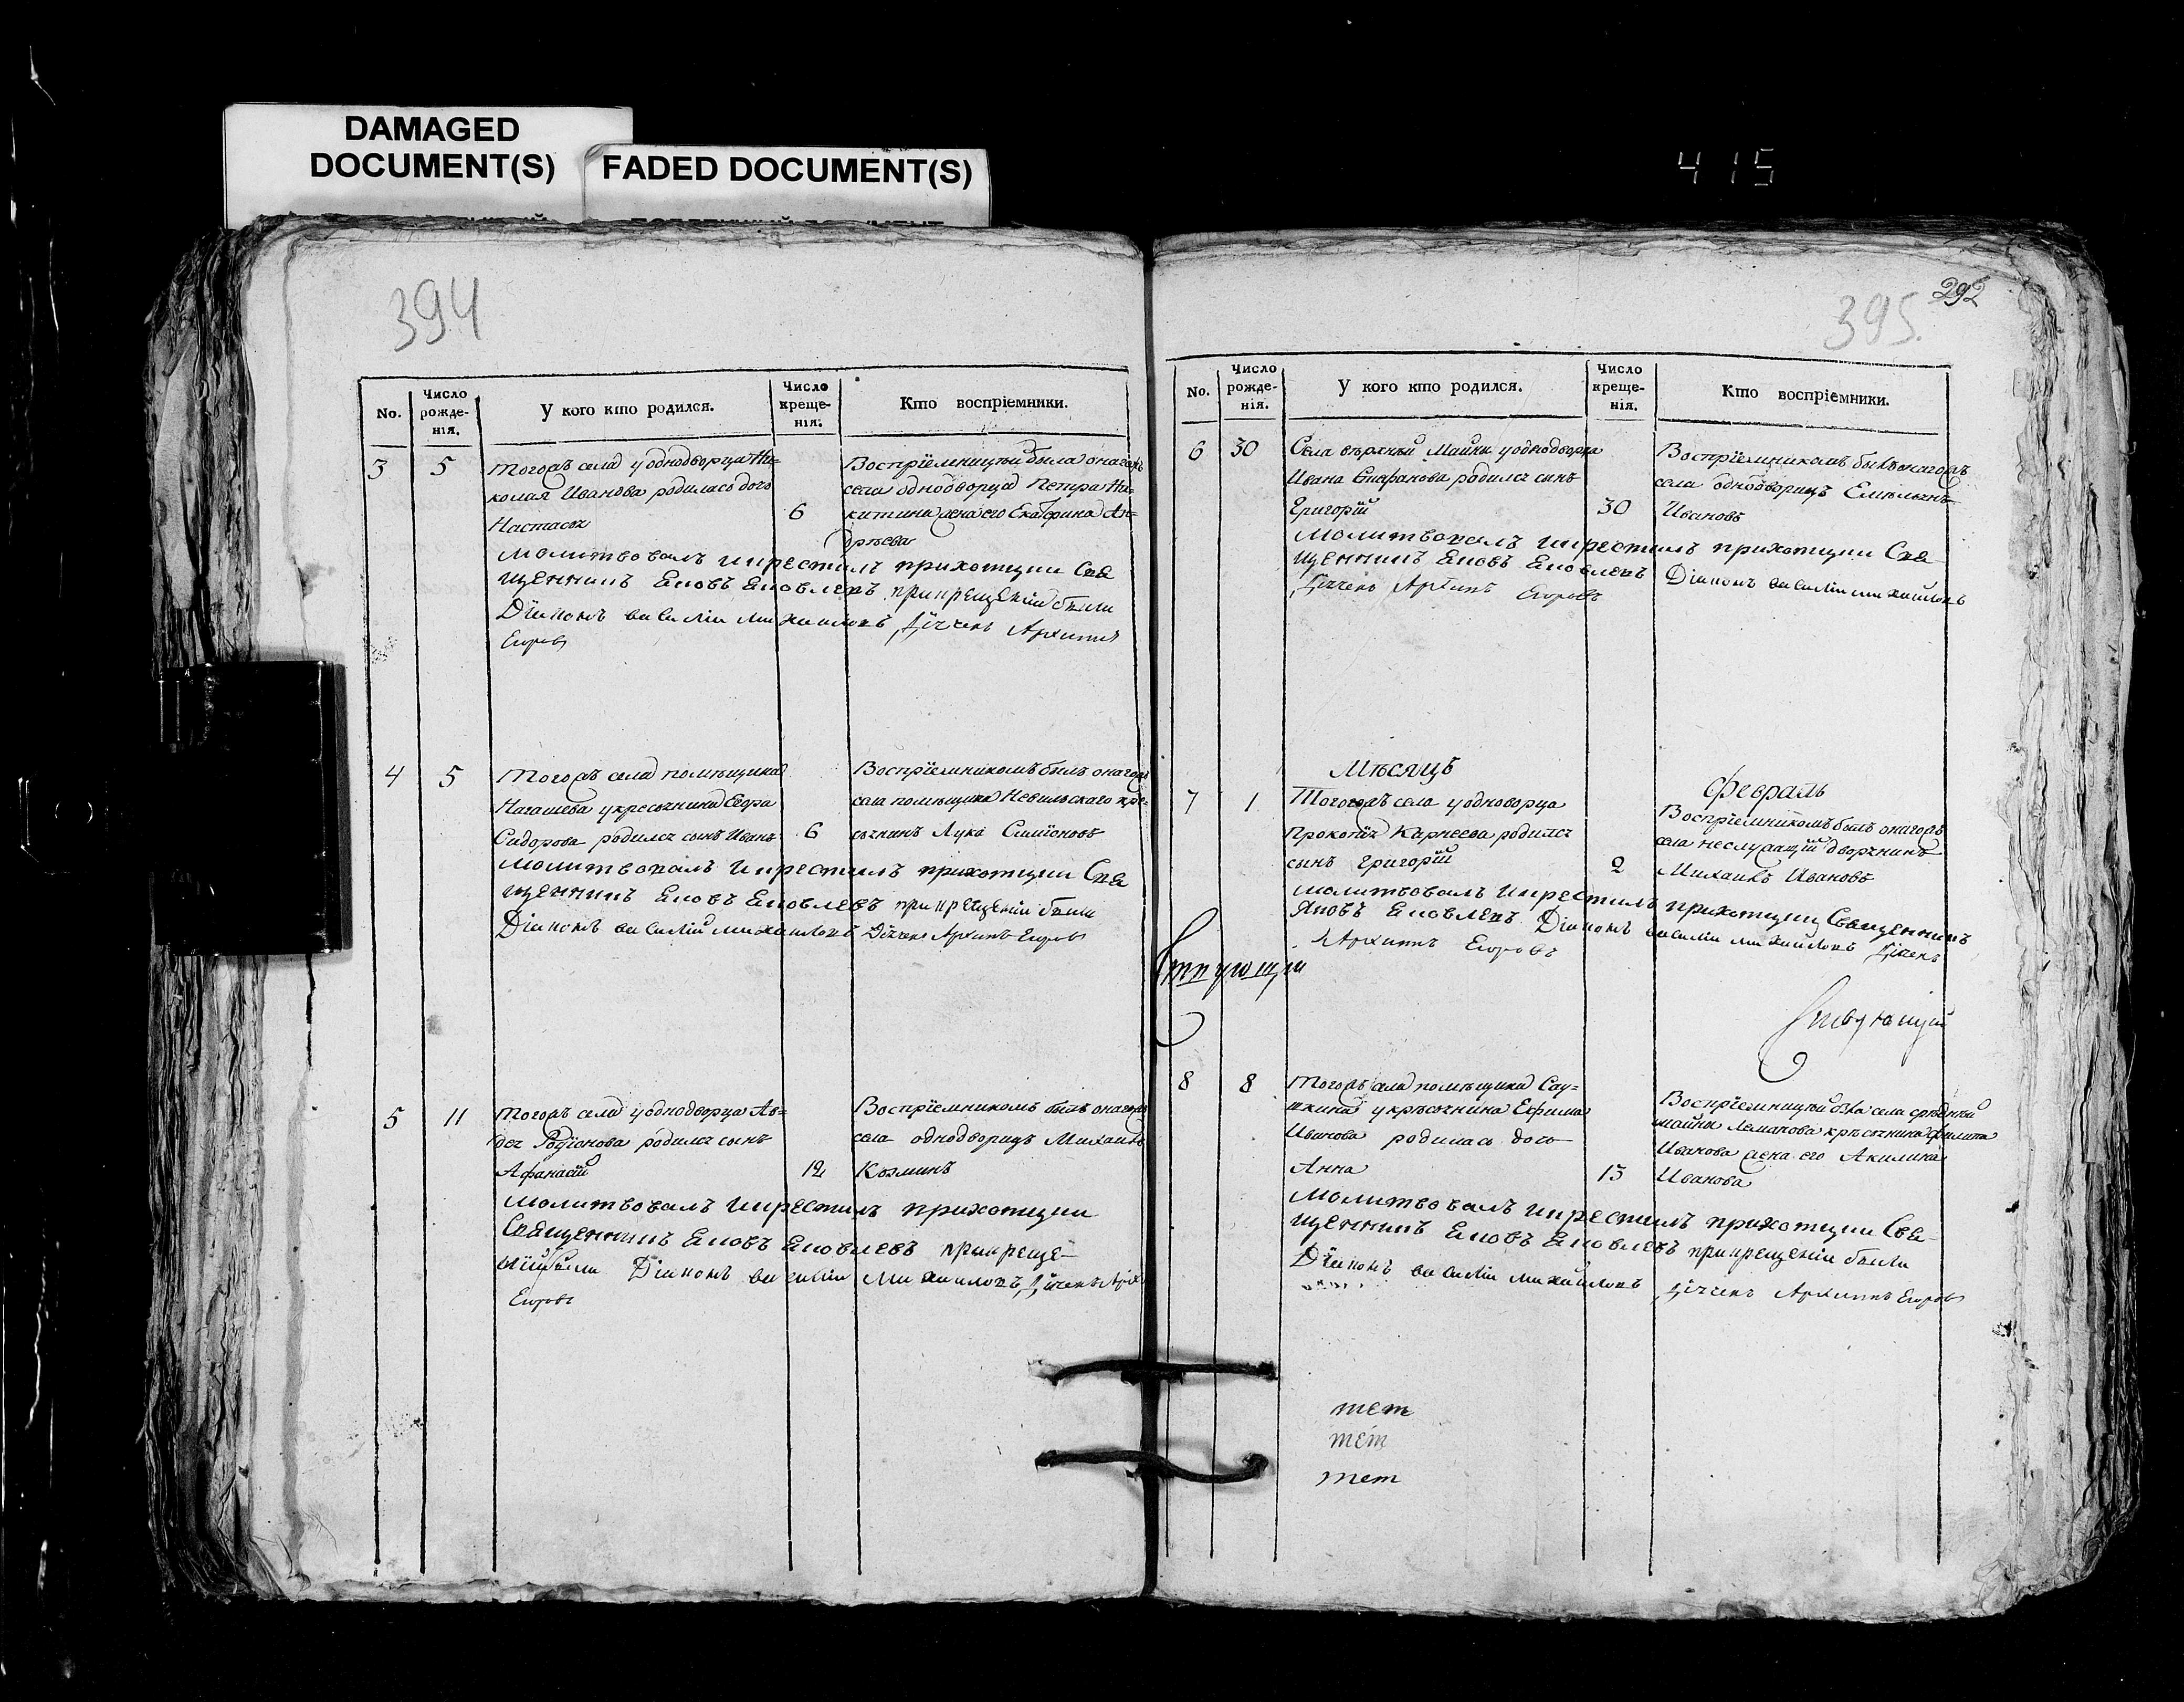 DAMAGED
DOCUMENT(S)
FADED DOCUMENT(S)
415
394
No.
Число
рожде-
нія.
У кого кто родился.
Число
креще-
нія.
Кто воспріемники.
3
5
Тогожъ села у однодворца Ни-
колая Иванова родилась дочь
Настасья
6
Воспріемницый была онагожъ
села однодворца Петра Ни-
китина жена его Екатерина Ан-
дрѣева
Молитвовалъ икрестилъ приходцкии Свя
щенникъ Ековъ Ековлевъ прикрещении были
Діиконъ василии михаиловъ Дічекъ Архипъ
Егоровъ
4
5
Тогожъ села помѣщика
у кресьянина Егора
Сидорова родился сынъ Иванъ
6
Воспріемникомъ былъ онагожъ
села помѣщика Невельскаго кре-
сьянинъ Лука Симіоновъ
Молитвовалъ икрестилъ приходцкии Свя
щенникъ Ековъ Ековлевъ прикрещении были
Діиконъ василии михаиловъ Дічекъ Архипъ Егоровъ
5
11
Тогожъ села у однодворца Ав-
дея Родіонова родился сынъ
Афанасій
12
Воспріемникомъ былъ онагожъ
села однодворецъ Михаилъ
Козминъ
Молитвовалъ икрестилъ приходцкии
Священникъ Ековъ Ековлевъ прикреще-
ніи были Діиконъ василии михаиловъ Дічекъ Архипъ
Егоровъ
292
395.
No.
Число
рожде-
нія.
У кого кто родился.
Число
креще-
нія.
Кто воспріемники.
6
30
Села вѣрхнѣй Майны у однодворца
Ивана Епифанова родился сынъ
Григорій
30
Воспріемникомъ былъ онагожъ
села однодворецъ Емельянъ
Ивановъ
Молитвовалъ икрестилъ приходцкии Свя
щенникъ Ековъ Ековлевъ Діиконъ василии михаиловъ
Дічекъ Архипъ Егоровъ
Мѣсяцъ
Февраль
7
1
Тогожъ села у однодворца
Прокопія Карнеева родился
сынъ Григорій
2
Воспріемникомъ былъ онагожъ
села неслужащій дворянинъ
Михаилъ Ивановъ
Молитвовалъ икрестилъ приходцкии Священникъ
Яковъ Ековлевъ Діиконъ василии михаиловъ Дічекъ
Архипъ Егоровъ
8
8
Тогожъ села помѣщика Сау-
шкина у крѣсьянина Ефима
Иванова родилась дочь
Анна
13
Воспріемницый была села срѣднѣй
майны Лемапова крѣсьянина Филипа
Иванова жена его Акилина
Иванова
Молитвовалъ икрестилъ приходцкии Свя-
щенникъ Ековъ Ековлевъ прикрещении были
Діиконъ василии михаиловъ Дічекъ Архипъ Егоровъ
тет
тет
тет